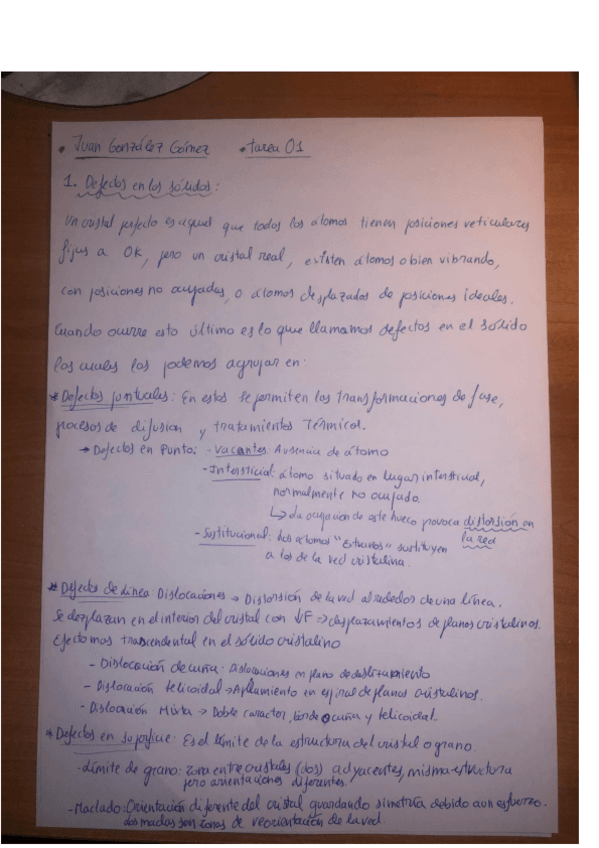 • Juan González Gómez • tarea 01
1. Defectos en los sólidos:
Un cristal perfecto es aquel que todos los átomos tienen posiciones reticulares
fijas a 0K, pero un cristal real, existen átomos o bien vibrando,
con posiciones no ocupadas, o átomos desplazados de posiciones ideales.
Cuando ocurre esto último es lo que llamamos defectos en el sólido
los cuales los podemos agrupar en:
* Defectos puntuales: En estos se permiten las transformaciones de fase,
procesos de difusion y tratamientos térmicos.
→ Defectos en Punto: - Vacantes: Ausencia de átomo
- Intersticial: átomo situado en lugar intersticial,
normalmente no ocupado.
↳ La ocupación de este hueco provoca distorsión en
la red
- Sustitucional: Los átomos "Extraños" sustituyen
a los de la red cristalina.
* Defectos de Línea: Dislocaciones → Distorsión de la red alrededor de una línea.
Se desplazan en el interior del cristal con ↓F ⇒ desplazamientos de planos cristalinos.
Efecto mas trascendental en el sólido cristalino
- Dislocación de cuña: Dislocaciones en plano de deslizamiento
- Dislocación helicoidal → Apilamiento en espiral de planos cristalinos.
- Dislocación Mixta → Doble caracter, borde o cuña y helicoidal.
* Defectos en superficie: Es el límite de la estructura del cristal o grano.
- Límite de grano: zona entre cristales (dos) adyacentes, misma estructura
pero orientaciones diferentes.
- Maclado: Orientación diferente del cristal guardando simetría debido a un esfuerzo.
Las maclas son zonas de reorientación de la red.